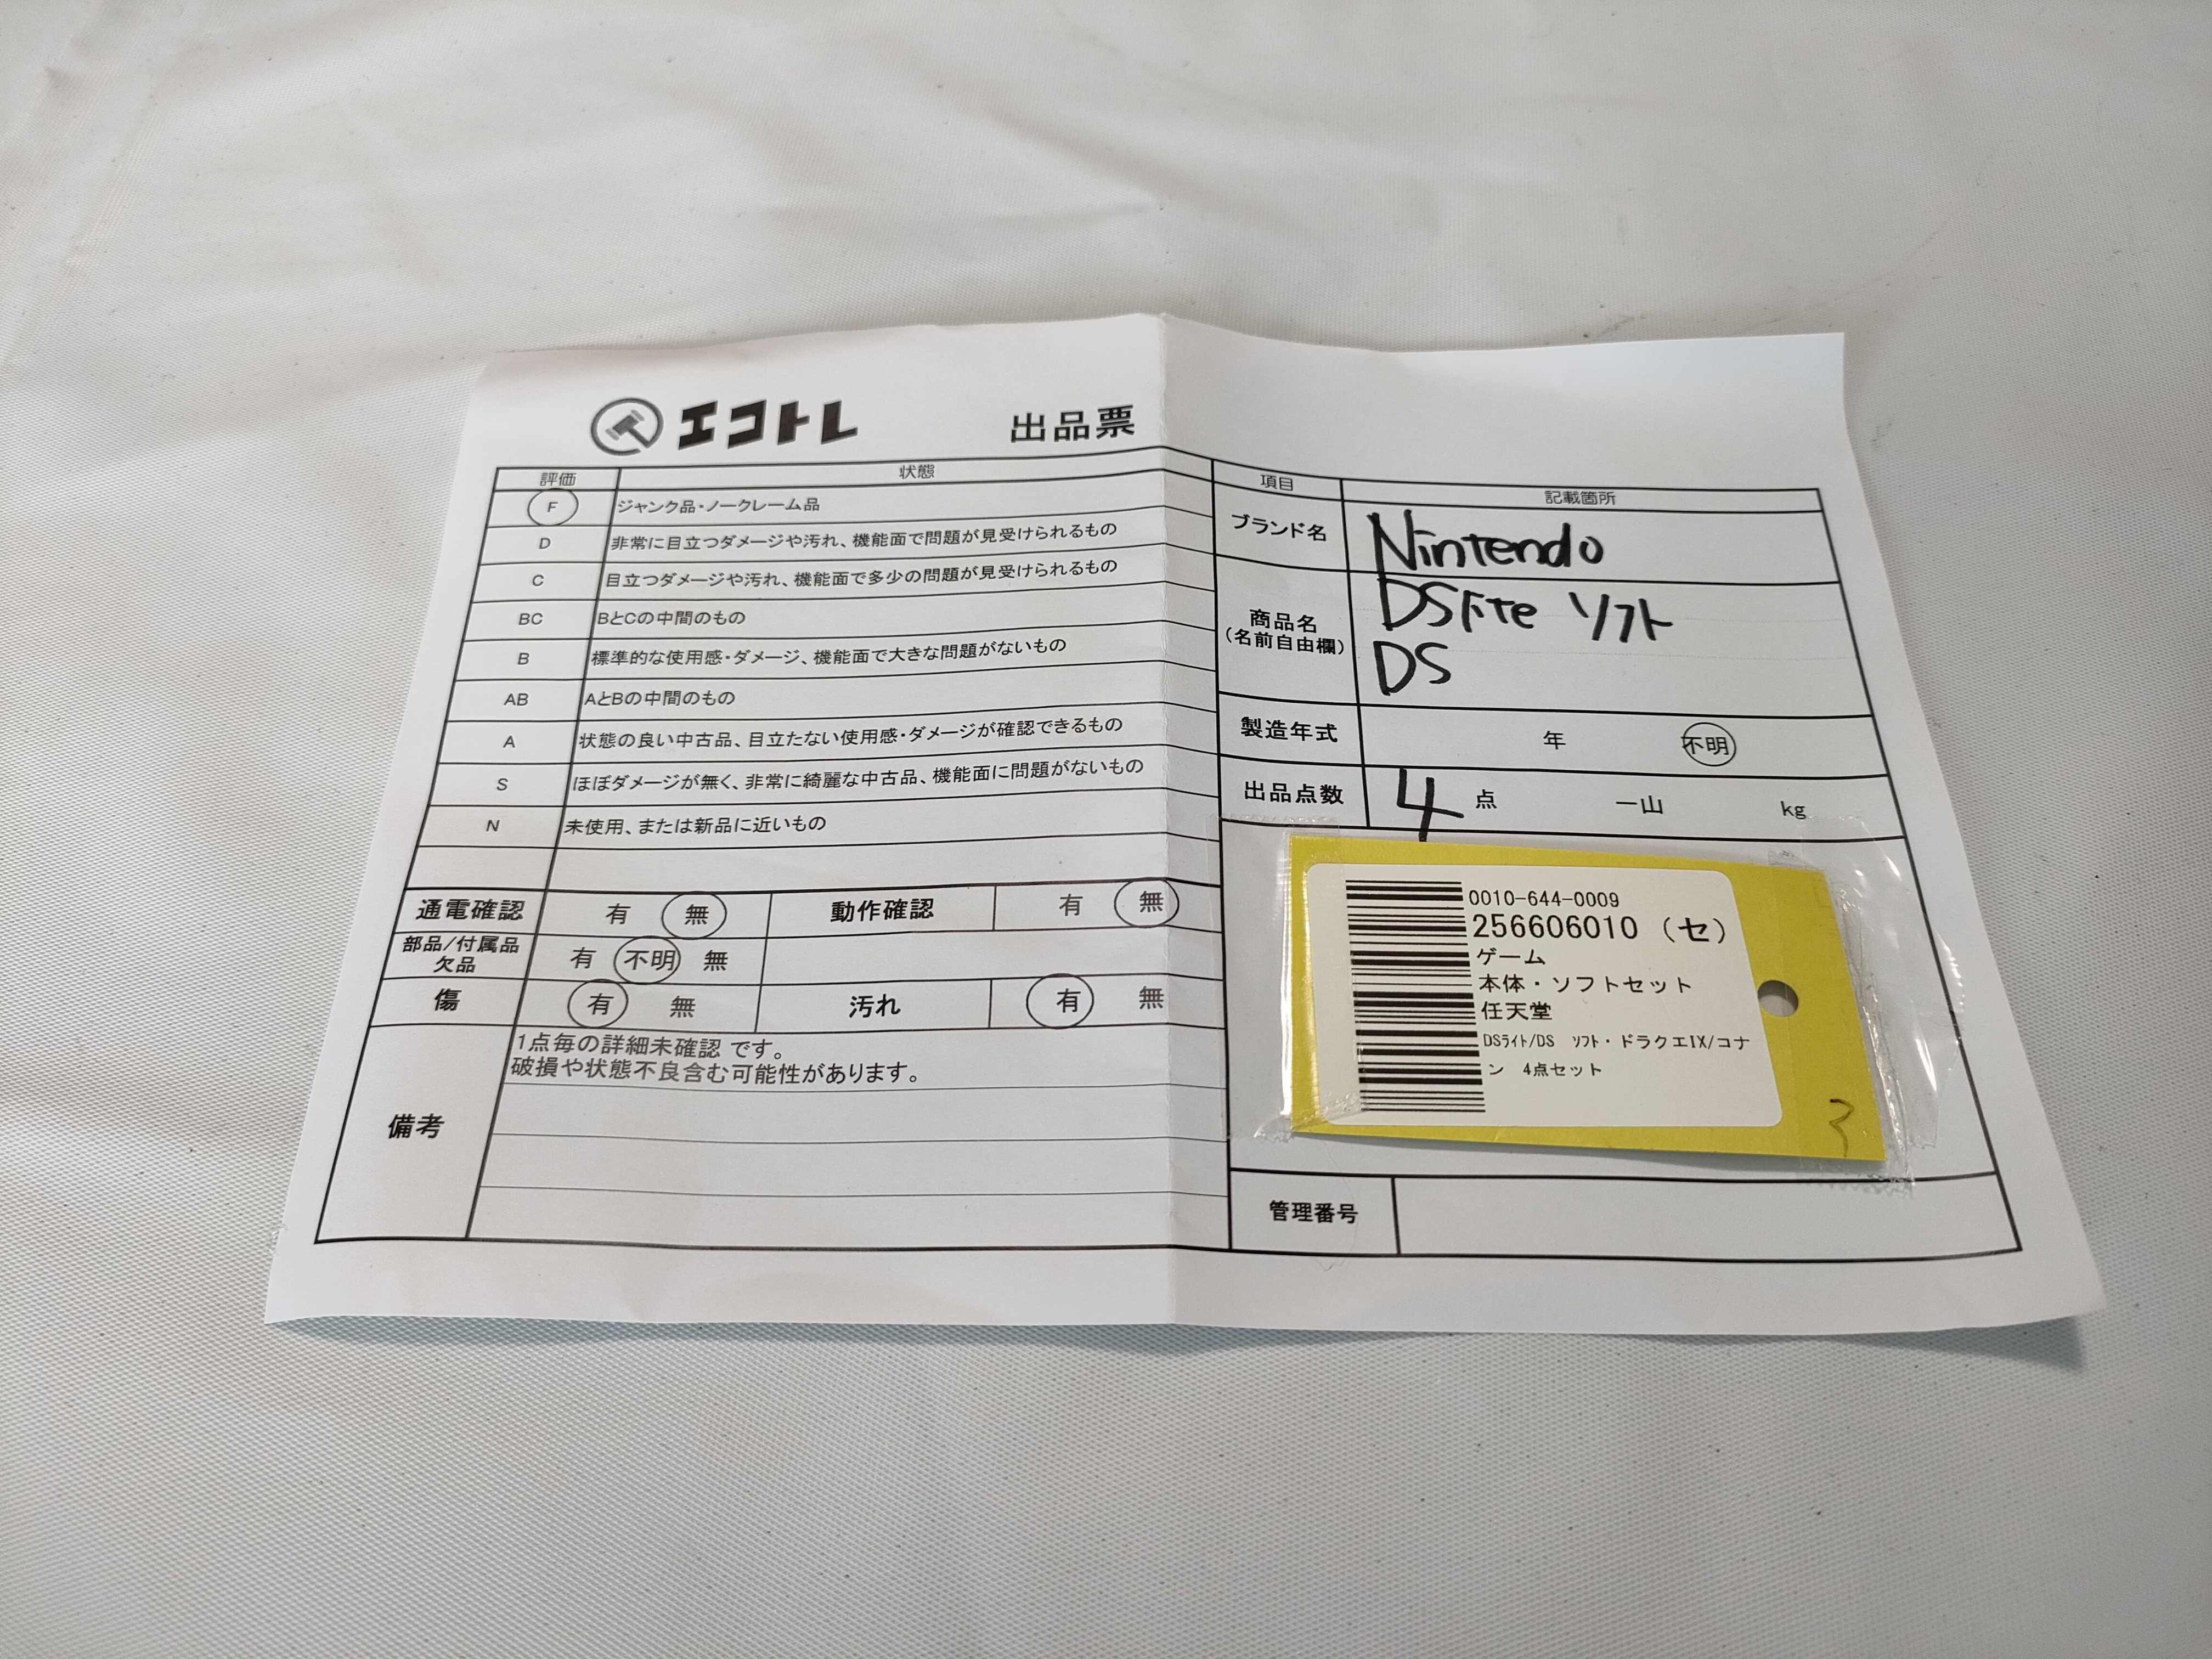 エコトレ 出品票
評価 状態
F ジャンク品・ノークレーム品
D 非常に目立つダメージや汚れ、機能面で問題が見受けられるもの
C 目立つダメージや汚れ、機能面で多少の問題が見受けられるもの
BC BとCの中間のもの
B 標準的な使用感・ダメージ、機能面で大きな問題がないもの
AB AとBの中間のもの
A 状態の良い中古品、目立たない使用感・ダメージが確認できるもの
S ほぼダメージが無く、非常に綺麗な中古品、機能面に問題がないもの
N 未使用、または新品に近いもの
通電確認 有 無 動作確認 有 無
部品/付属品
欠品 有 不明 無
傷 有 無 汚れ 有 無
備考
1点毎の詳細未確認 です。
破損や状態不良含む可能性があります。
項目 記載箇所
ブランド名 Nintendo
商品名
(名前自由欄)
DSlite ソフト
DS
製造年式 年 不明
出品点数 4 点 一山 kg
0010-644-0009
256606010 (セ)
ゲーム
本体・ソフトセット
任天堂
DSライト/DS ソフト・ドラクエIX/コナ
ン 4点セット
3
管理番号